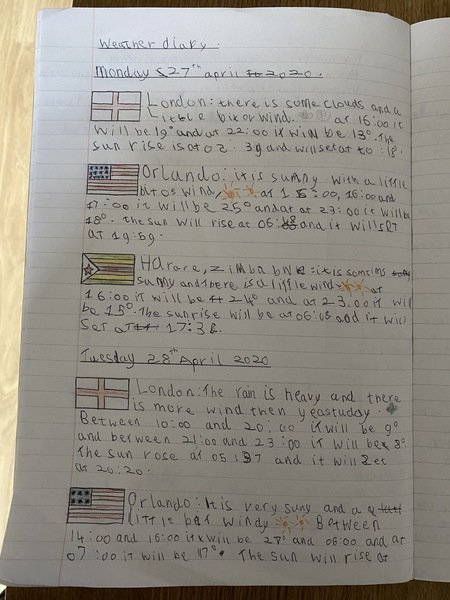 Weather diary.
Monday 27th april 2020.
London: there is some clouds and a
little bit or wind. at 16:00 it
will be 19° and at 22:00 it will be 13°. The
sun rise is at 02:39 and will set at 18.
Orlando: it is sunny with a little
bit of wind, at 15:00, 16:00 and
17:00 it will be 25° and at at 23:00 it will be
18°. The sun will rise at 06: and it will set
at 19:59.
Harare, Zimbabwe: it is somtims
sunny and there is a little wind at
16:00 it will be 24° and at 23.00 it will
be 15°. The sunrise will be at 06:03 and it will
set at 17:38.
Tuesday 28th April 2020
London: The rain is heavy and there
is more wind then yeastuday.
Between 10:00 and 20:00 it will be 9°
and between 21:00 and 23:00 it will be 8°.
The sun rose at 05:37 and it will set
at 20:20.
Orlando: It is very suny and a
little bit windy Between
14:00 and 16:00 it will be 28° and 06:00 and at
07:00 it will be 17°. The sun will rise at